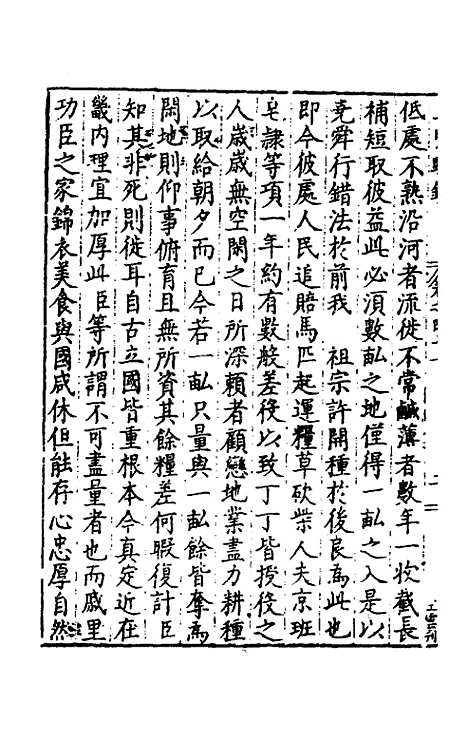 低處不熟沿河者流徙不常鹹薄者數年一收截長
補短取彼益此必須數畝之地僅得一畝之入是以
堯舜行錯法於前我　祖宗許開種於後良為此也
即今彼處人民追賠馬匹起運糧草砍柴人夫京班
皂隸等項一年約有數般差役以致丁丁皆授役之
人歲歲無空閑之日所深賴者顧戀地業盡力耕種
以取給朝夕而已今若一畝只量與一畝餘皆奪為
閑地則仰事俯育且無所資其餘糧差何暇復計臣
知其非死則徙耳自古立國皆重根本今真定近在
畿內理宜加厚此臣等所謂不可盡量者也而戚里
功臣之家錦衣美食與國咸休但能存心忠厚自然